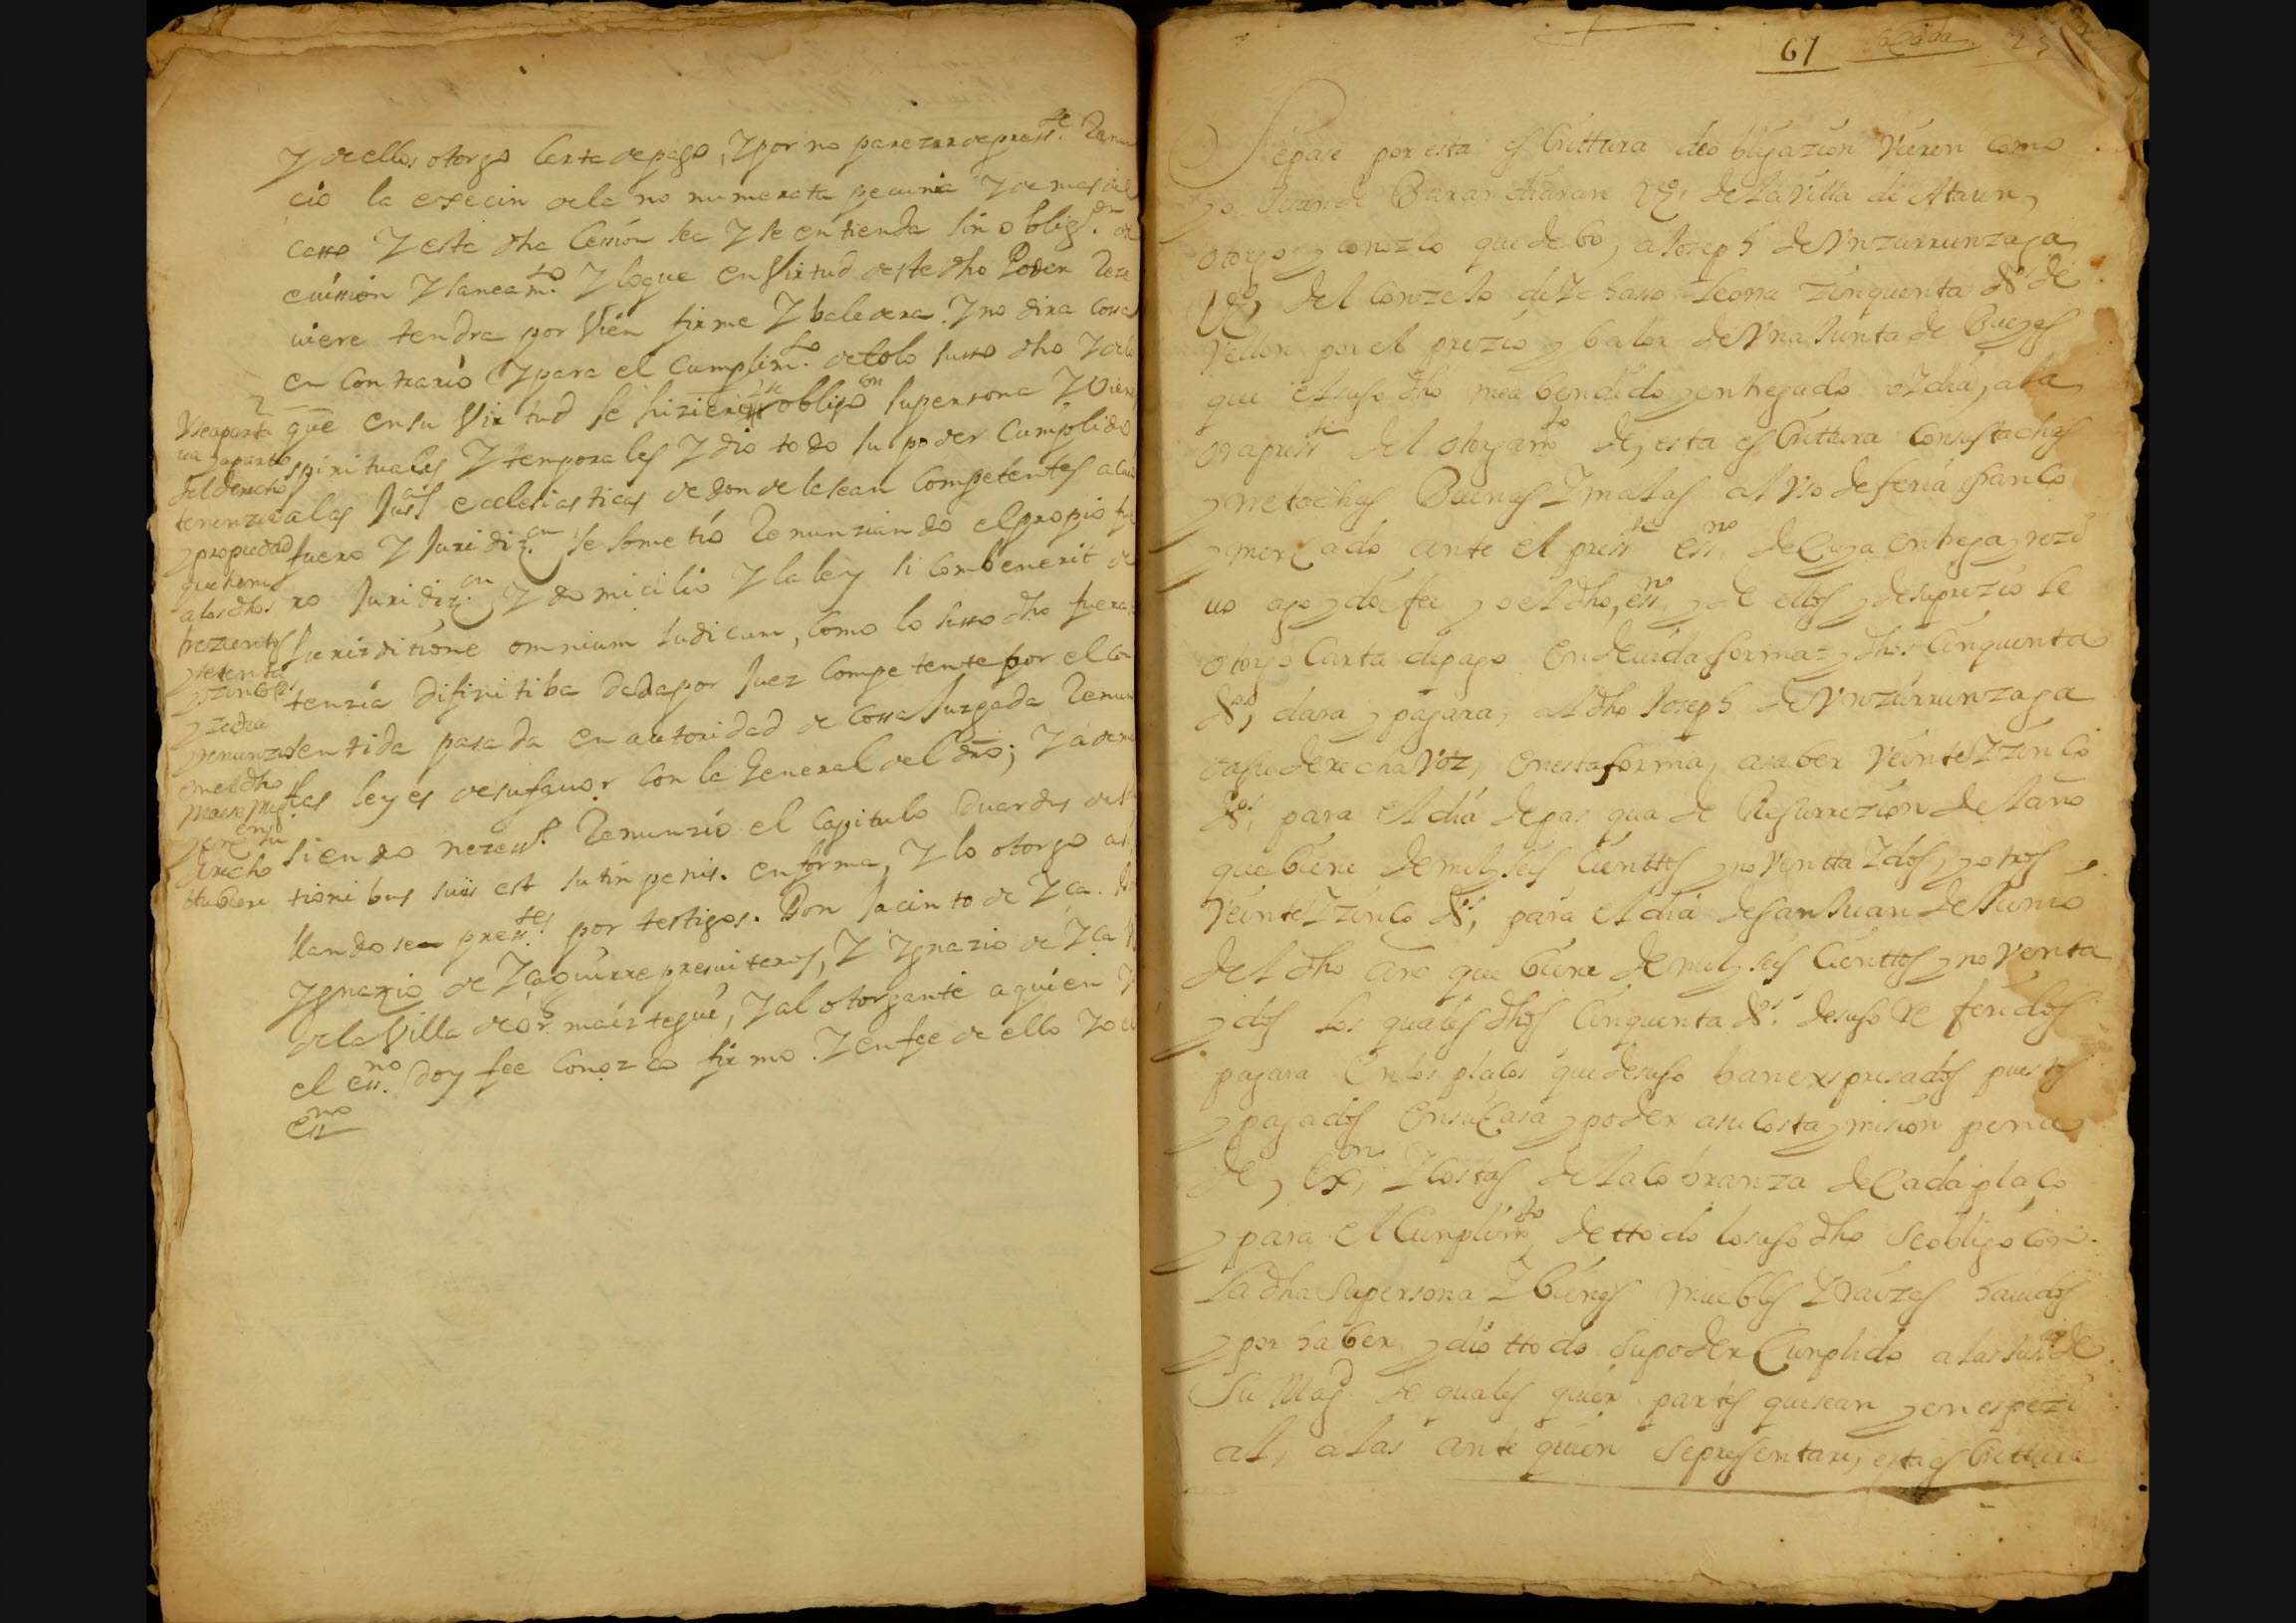 y de ellos otorgo Carta de pago, y por no parezer de press.te Renun
cio la exepcin de la no numerata pecunia y demas del
casso y esta dha Cession sea y se entienda sin oblig.on de
euission y saneam.to y lo que en Virtud deste dho Poder Reze
uiere tendra por Vien firme y baledera. y no dira Cossa
en Contrario y para el Cumplim.to de todo lo susso dho y de lo
que en su Virtud se hiziere se obligo con su persona y Vienes
spirituales y temporales y dio todo su poder Cumplido
a las Jus.as ecclesiasticas de donde le sean Competentes a cuio
fuero y Juridiz.on se sometio Renunziando el propio fue
ro Juridiz.on y domicilio y la ley si Combenerit de
Jurisditione omnium Judicum, como lo susso dho fuera
tenzia difinitiba dada por Juez Competente por el con
sentida pasada en autoridad de Cossa Juzgada Renun
las leyes de su fauor con la General del dro; y a de mas
siendo nezess.o Renunzio el Capitulo Duardus de
tionibus suiis est sutin penis. en forma, y lo otorgo assi
llandose press.tes por testigos. Don Jacinto de Yça. Don
Ygnazio de Yçaguirre presuiteros, y Ygnazio de Yça
de la Villa de Or.maiztegui, y al otorgante a quien yo
el ess.no doy fee Conozco firmo. y en fee de ello yo el
ess.no
Y se aparta
ua y aparto
del derecho
tenenzia
y propiedad
que tiene
a los dhos
trezientos
y setenta
y zinco Rs
y zedia
y renunzio
en el dho
Maese Miss
y en su
derecho
ttubiere
67 Sacada
Sepase por esta esCrittura de obligazion Vieren como
yo Juan de Barandiaran Vz.o de la Villa de Ataun,
otorgo y conozco que debo, a Joseph de Ynzaurrunzaga
Vz.o del Conzejo de Ychasso Leona zinquenta ds de
Vellon por el prezio y balor de Vna Junta de Bueyes
que el suso dho me a bendido y entregado oy dia, a la
ora press.te del otorgam.to de, esta esCrittura Con sus tachas
y netachas Buenas y malas al Vso de feria franCo
y merCado ante el press.te ess.no de Cuya entrega y rezi
uo ago y doi fee yo el dho, ess.no y de ellos y de su prezio le
otorgo Carta de pago en deuida forma = y dhos Cinquenta
ds, dara y pagara, al dho Joseph de Ynzaurrunzaga
o a su derecha Voz, en esta forma, a saber Veinte y zinco
ds, para el dia de pasqua de Resurrezion del año
que biene de mil y seis Cienttos y noventta y dos, y otros
Veinte y zinco ds, para el dia de san Juan de Junio
del dho año que biene de mil y seis Cienttos y noventa
y dos los quales dhos Cinquenta ds. de suso Re feridos
pagara en los plaços que de suso ban expresados puestos
y pagados en su Casa y poder a su Costa y mision pena
de, ex.on y Costas de la cobranza de Cada plaço
y para el Cunplim.to de ttodo lo suso dho se obligo con
la dha su persona y bienes muebles y raizes hauidos
y por haber y dio ttodo su poder Cunplido a las Jus.as de
Su Mag.d de quales quier partes que sean y en espezi
al, a las ante quien se presentare, esta esCrittura